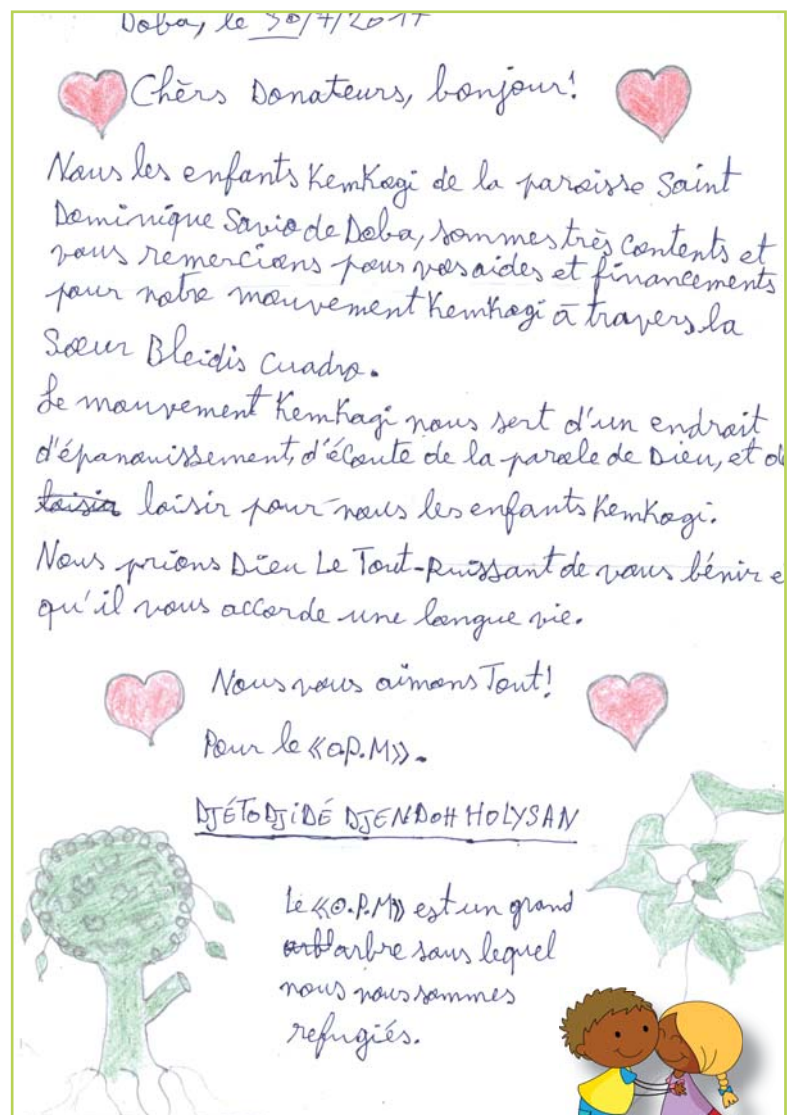 Doba, le 30/7/2017
Chèrs Donateurs, bonjour!
Nous les enfants Kemkogi de la paroisse Saint
Dominique Savio de Doba, sommes très contents et
vous remercions pour vos aides et financements
pour notre mouvement Kemkogi à travers la
Sœur Bleidis Cuadro.
Le mouvement Kemkogi nous sert d'un endroit
d'épanouissement, d'écoute de la parole de Dieu, et de
loisir loisir pour nous les enfants Kemkogi.
Nous prions Dieu Le Tout-Puissant de vous bénir e
qu'il vous accorde une longue vie.
Nous vous aimons Tout!
Pour le «O.P.M».
DJÉTODJIDÉ DJENDOH HOLYSAN
Le «O.P.M» est un grand
arbl arbre sous lequel
nous nous sommes
refugiés.